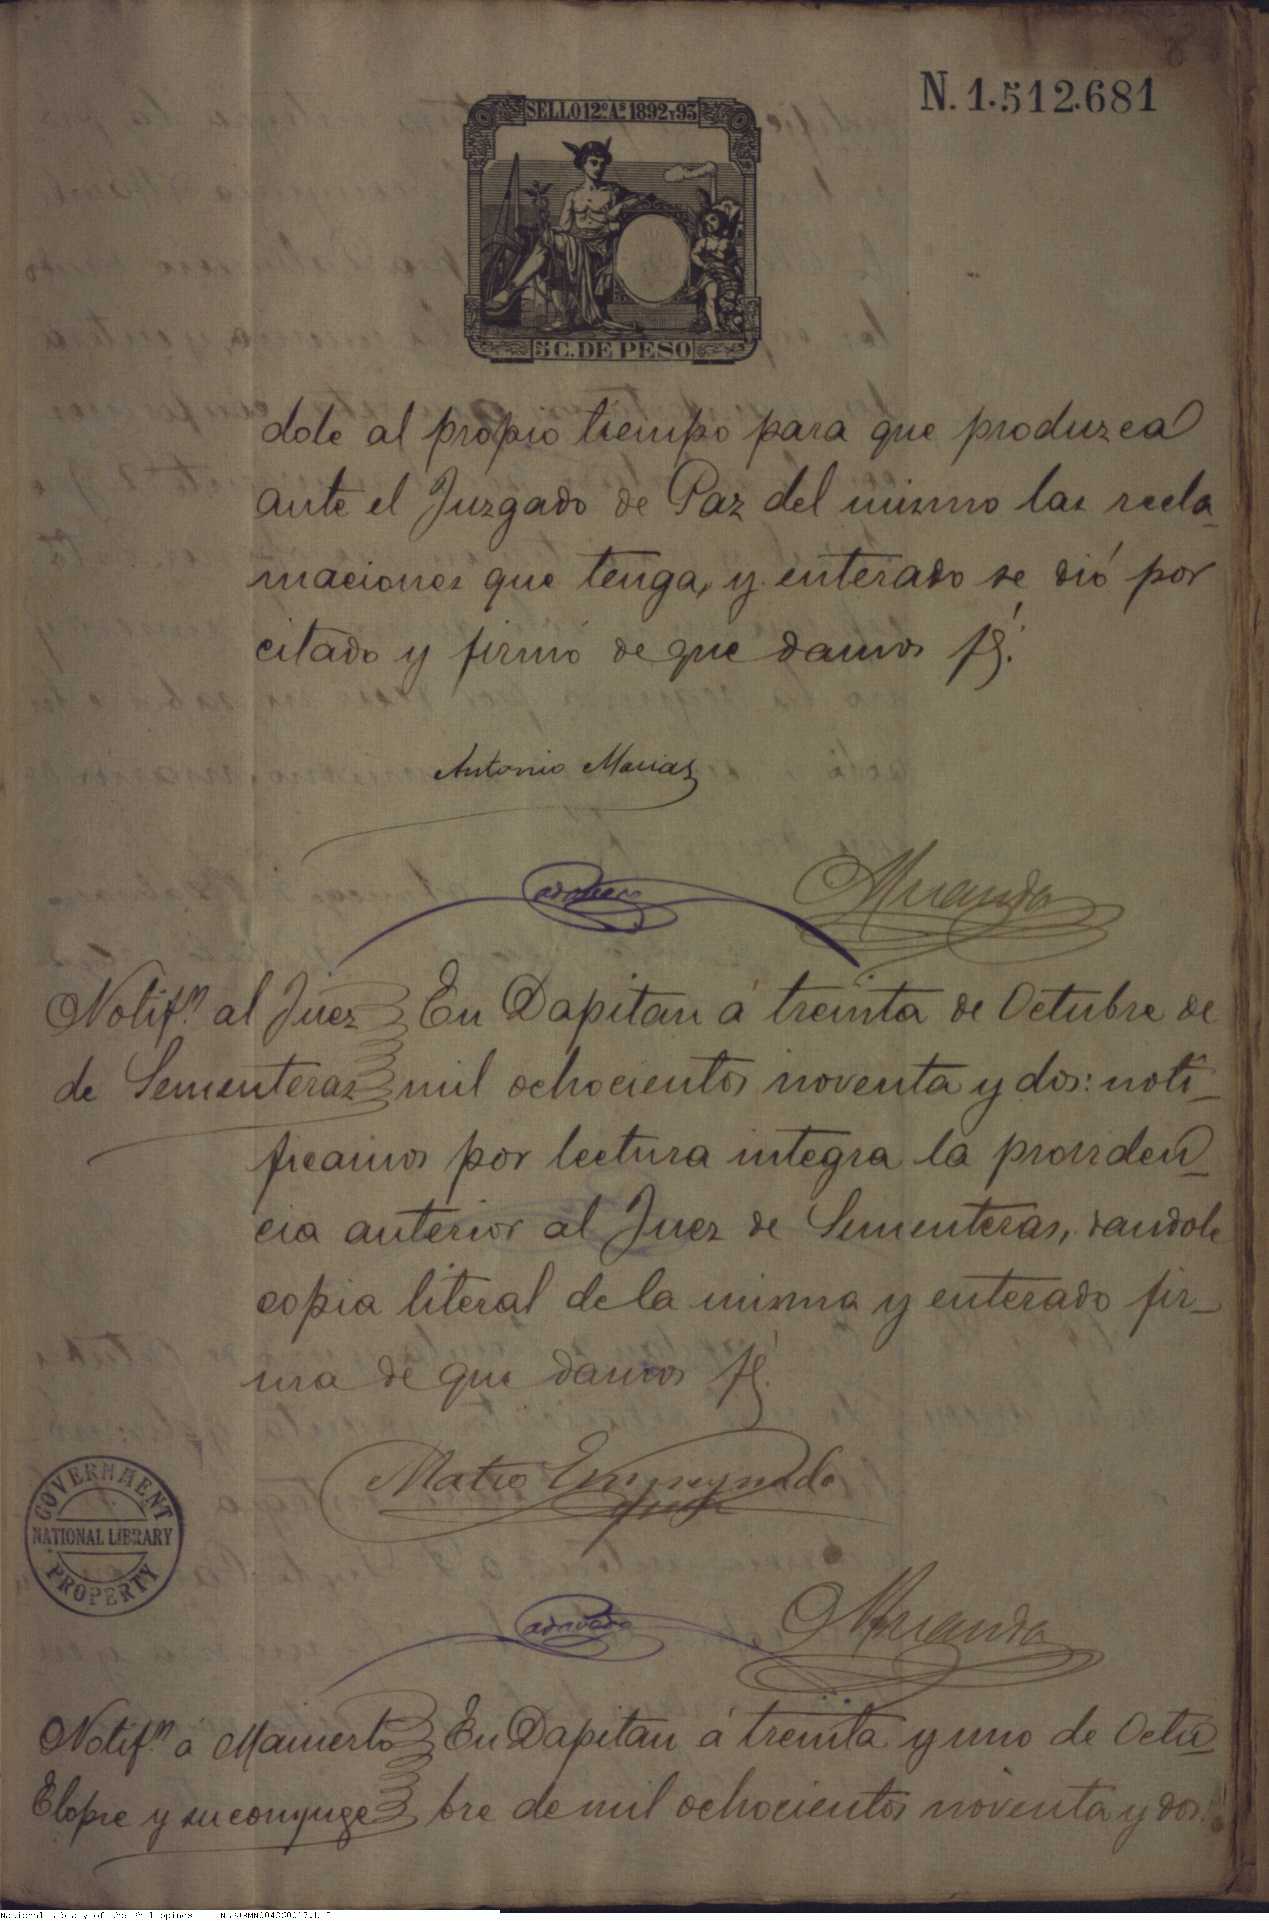 8
N. 1.512.681
SELLO 12º Aº 1892 Y 93
5 C. DE PESO
dole al propio tiempo para que produzca
ante el Juzgado de Paz del mismo las recla_
maciones que tenga, y enterado se dió por
citado y firmó de que damos fé.
Antonio Macias
Miranda
Notif.n al Juez En Dapitan á treinta de Octubre de
de Sementeras mil ochocientos noventa y dos: noti_
ficamos por lectura integra la providen_
cia anterior al Juez de Sementeras, dandole
copia literal de la misma y enterado fir_
ma de que damos fé.
Mateo
Miranda
Notif.n á Mamerto En Dapitan á treinta y uno de Octu_
Elopre y su conyuge bre de mil ochocientos noventa y dos:
GOVERNMENT
NATIONAL LIBRARY
PROPERTY
National Library of the Philippines